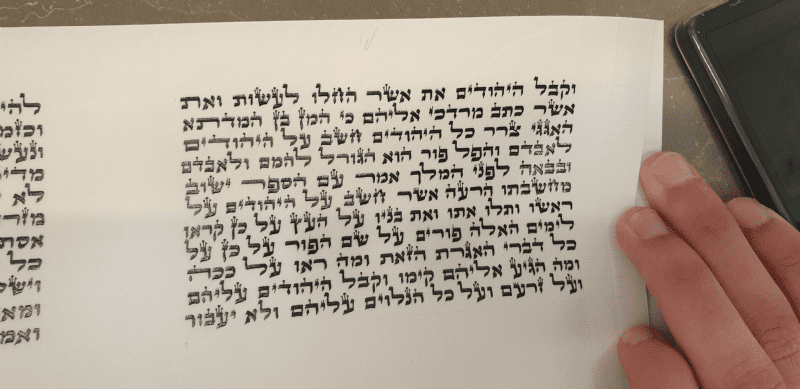 וקבל היהודים את אשר החלו לעשות ואת
אשר כתב מרדכי אליהם כי המן בן המדתא
האגגי צרר כל היהודים חשב על היהודים
לאבדם והפל פור הוא הגורל להמם ולאבדם
ובבאה לפני המלך אמר עם הספר ישוב
מחשבתו הרעה אשר חשב על היהודים על
ראשו ותלו אתו ואת בניו על העץ על כן קראו
לימים האלה פורים על שם הפור על כן על
כל דברי האגרת הזאת ומה ראו על ככה
ומה הגיע אליהם קימו וקבל היהודים עליהם
ועל זרעם ועל כל הנלוים עליהם ולא יעבור
להי
וכזמ
ונעש
מדי
לא
מזר
אסת
כל
ויש
ומא
ואמ